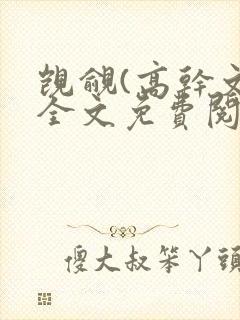 覬覦(高幹文
全文免費閱
傻大叔笨丫頭